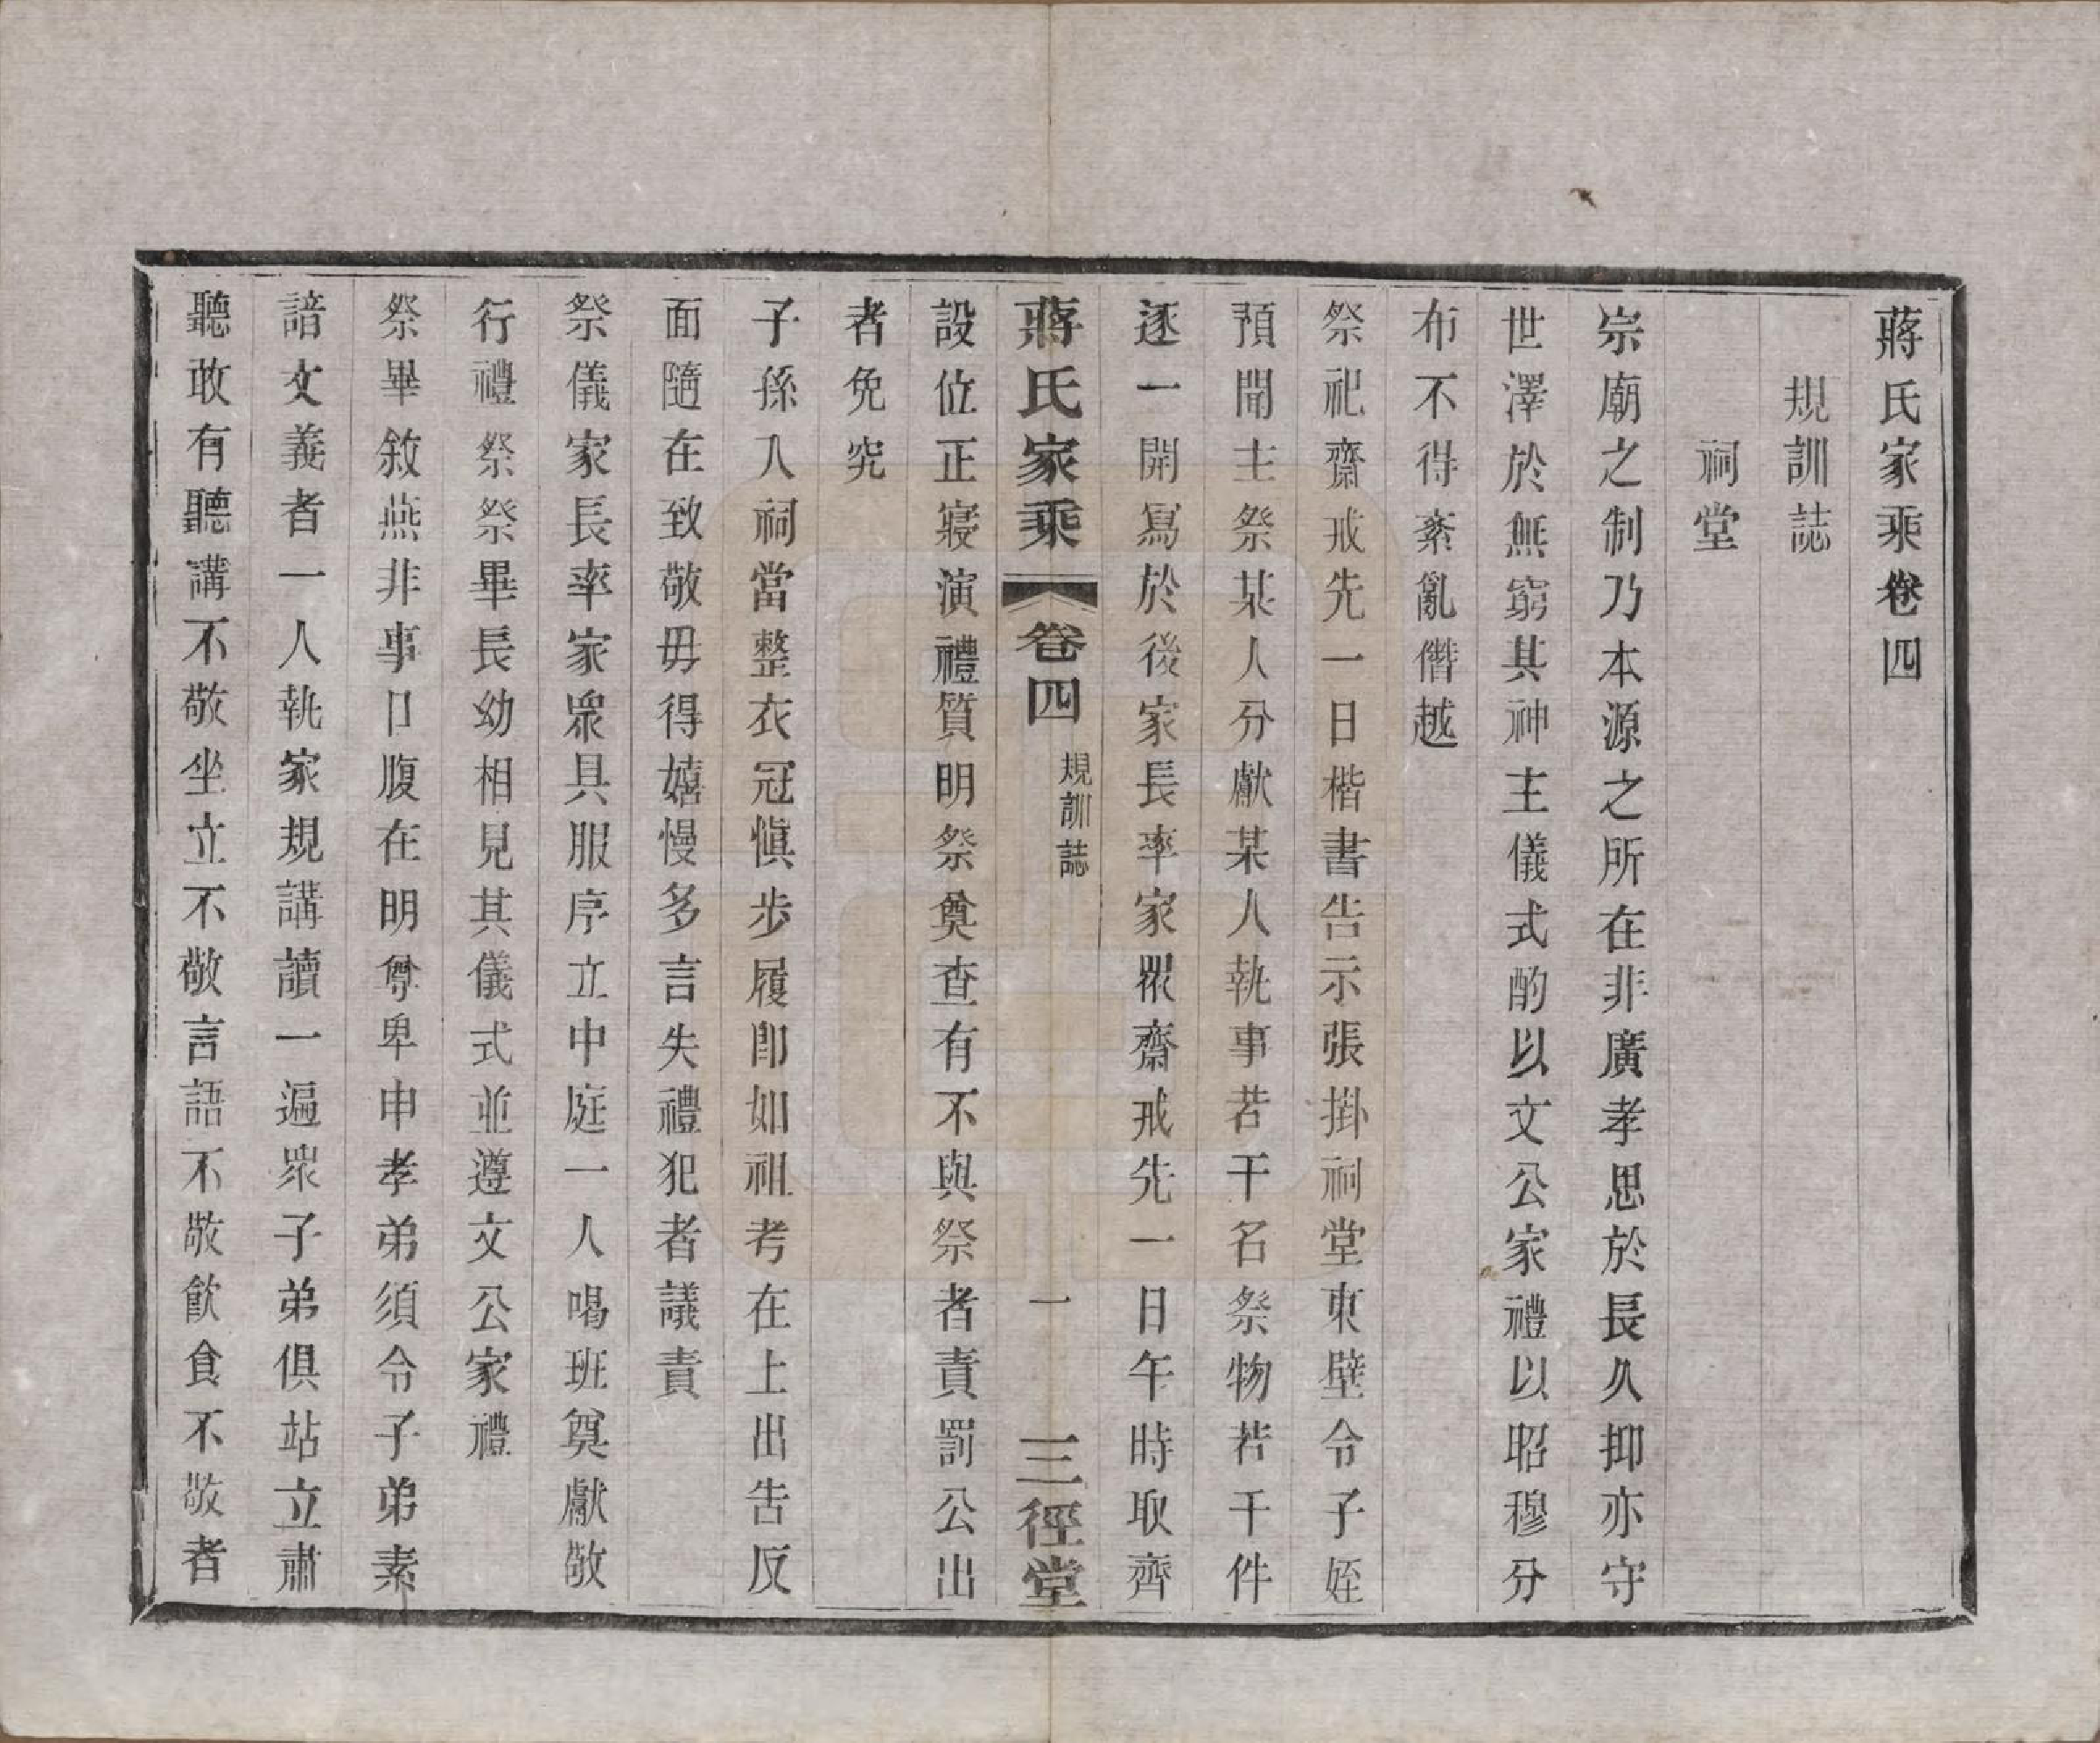 蔣氏家乘卷四
規訓誌
祠堂
宗廟之制乃本源之所在非廣孝思於長久抑亦守
世澤於無窮其神主儀式酌以文公家禮以昭穆分
布不得紊亂僭越
祭祀齋戒先一日楷書告示張掛祠堂東壁令子姪
預聞主祭某人分獻某人執事若干名祭物若干件
逐一開寫於後家長率家眾齋戒先一日午時取齊
蔣氏家乘 卷四 規訓誌 一 三徑堂
設位正寢演禮質明祭奠查有不與祭者責罰公出
者免究
子孫入祠當整衣冠愼步履卽如祖考在上出告反
面隨在致敬毋得嬉慢多言失禮犯者議責
祭儀家長率家眾具服序立中庭一人喝班奠獻敬
行禮祭祭畢長幼相見其儀式並遵文公家禮
祭畢敘燕非事口腹在明尊卑申孝弟須令子弟素
諳文義者一人執家規講讀一遍眾子弟俱站立肅
聽敢有聽講不敬坐立不敬言語不敬飲食不敬者